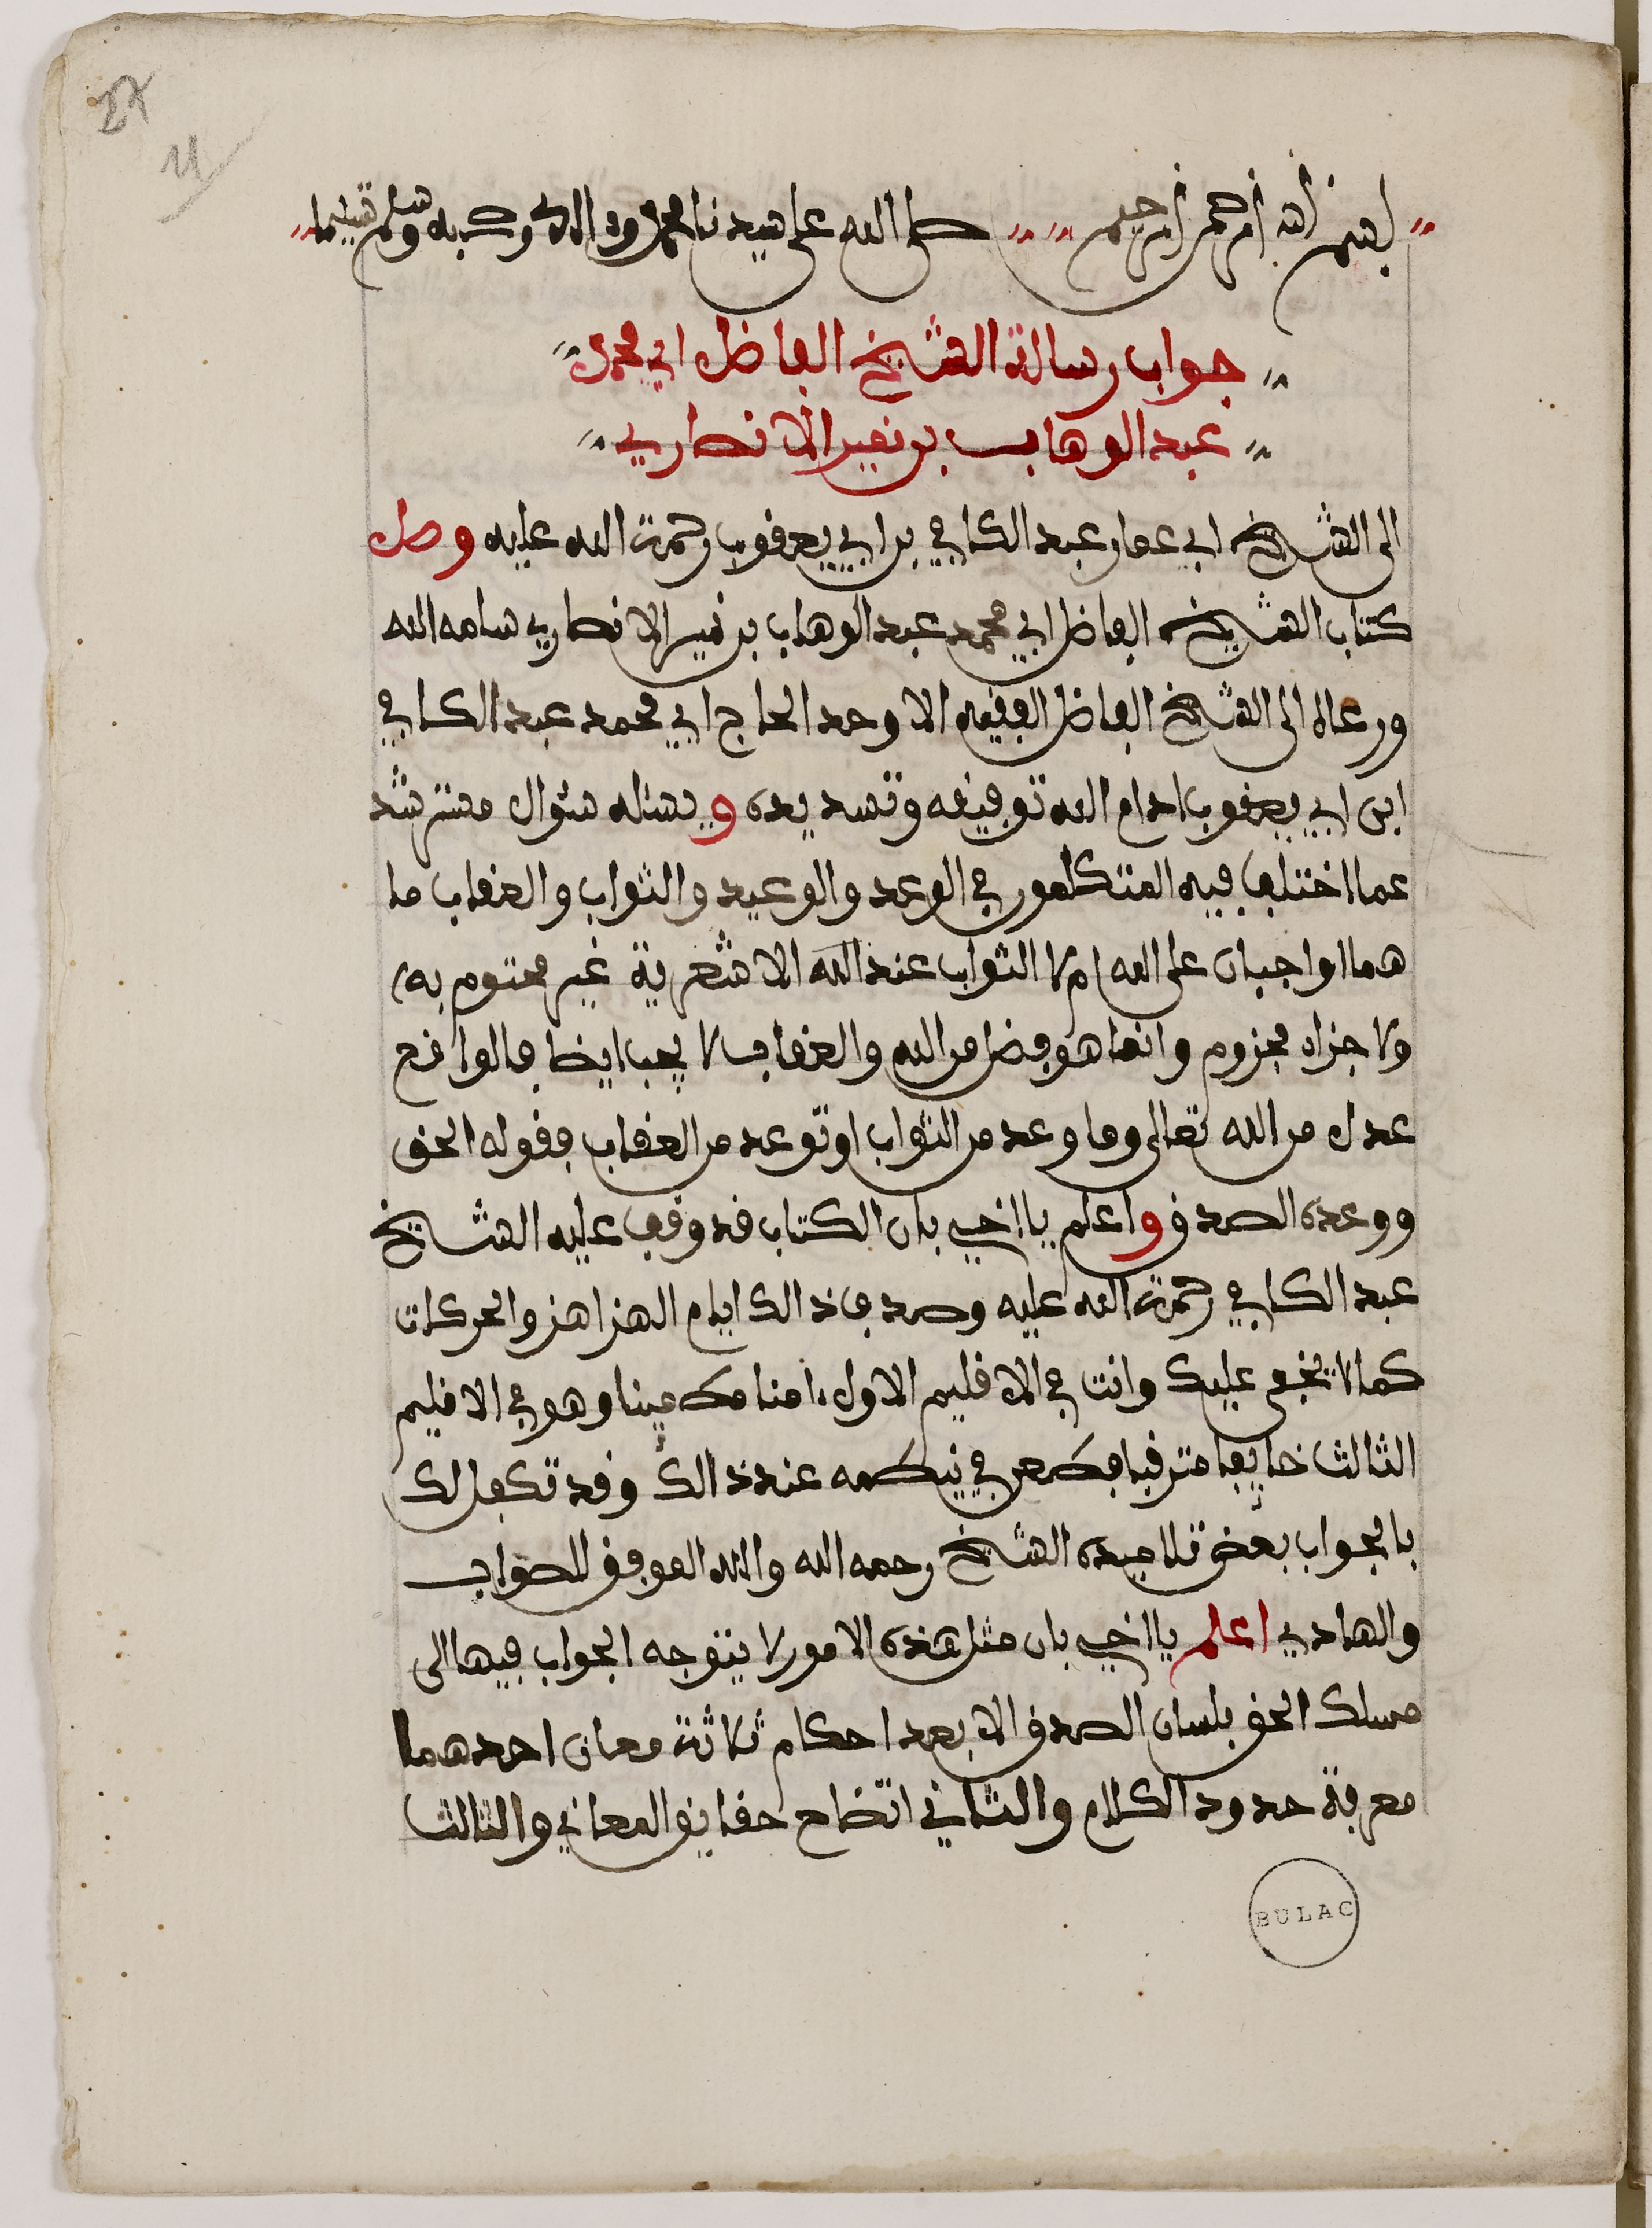 بسم الله الرحمن الرحيم صلى الله على سيدنا محمد وءاله وصحبه وسلم تسليما
جواب رسالة الشيخ الفاضل ابي محمد
عبد الوهاب بن نصير الانصاري
الى الشيخ ابي عمار عبد الكافي بن ابي يعقوب رحمت الله عليه وصل
كتاب الشيخ الفاضل ابي محمد عبد الوهاب بن نصير الانصاري سلمه الله
ورعاه الى الشيخ الفاضل الفقيه الاوحد الحاج ابي محمد عبد الكافي
ابن ابي يعقوب ادام الله توفيقه وتسديده ويسئله سئوال مسترشد
عما اختلف فيه المتكلمون في الوعد والوعيد والثواب والعقاب ما
هما اواجبان على الله ام لا الثواب عند الاشعرية غير محتوم به
ولا جزاء مجزوم وانما هو فضل من الله والعقاب لا يجب ايضا فالواقع
عدل من الله تعالى وما وعد من الثواب او توعد من العقاب فقوله الحق
ووعده الصدق واعلم يا اخي بان الكتاب قد وقف عليه الشيخ
عبد الكافي رحمت الله عليه وصدف ذالك ايام الهزاهز والحركات
كما لا يخفى عليك وانت في الاقليم الاول ءامنا مطمينا وهو في الاقليم
الثالث خايفا مترقبا فطعن في نيطه عند ذالك وقد تكفل لك
بالجواب بعض تلاميده الشيخ رحمه الله والله الموفق للصواب
والهادي اعلم يا اخي بان مثل هذه الامور لا يتوجه الجواب فيها الى
مسلك الحق بلسان الصدق الا بعد احكام ثلاثة معان احدهما
معرفة حدود الكلام والثاني اتضاح حقايق المعاني والثالث
BULAC